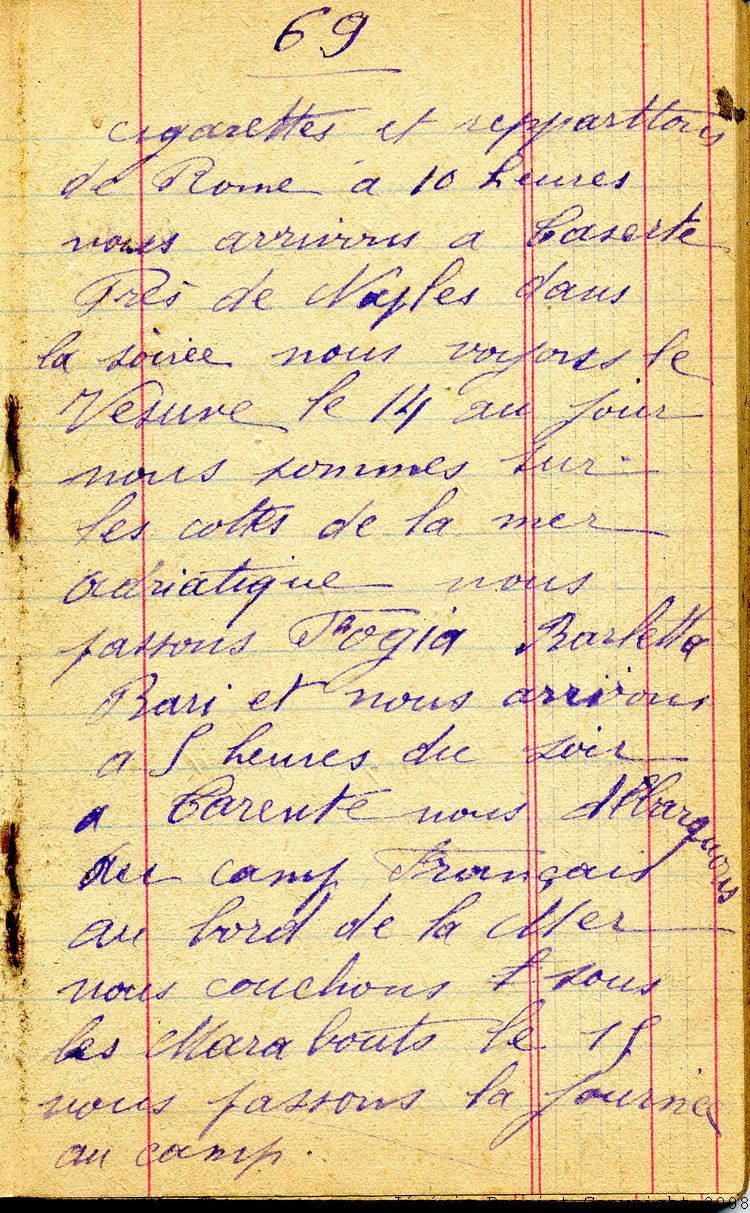 69
cigarettes et reppartons
de Rome a 10 heures
nous arrivons a Caserte
Près de Naples dans
la soirée nous voyons le
Vesuve le 14 au jour
nous sommes sur
les cottes de la mer
adriatique nous
passons Fogia Barletta
Bari et nous arrivons
a 5 heures du soir
a Tarente nous débarquons
au camp Français
au bord de la Mer
nous couchons sous
les Marabouts le 15
nous passons la journée
au camp.